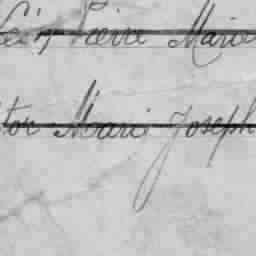 Pierre Marie
tor Marie Joseph